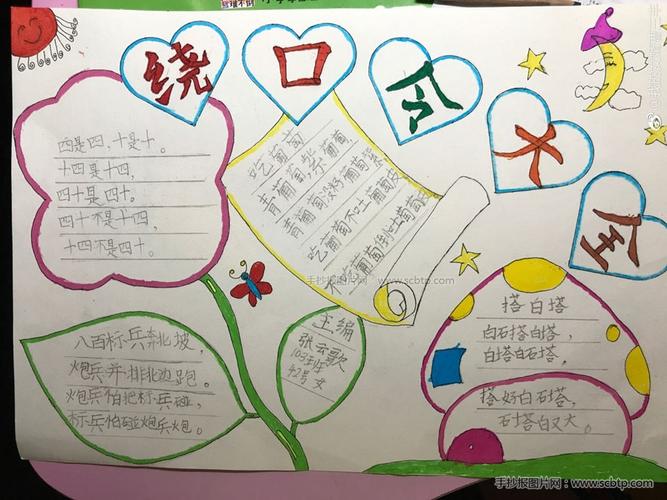 绕口令大全
四是四,十是十。
十四是十四,
四十是四十。
四十不是十四,
十四不是四十。
吃葡萄
青葡萄紫葡萄,
青葡萄没好葡萄紫
吃葡萄不吐葡萄皮
不吃葡萄到吐葡萄皮
手抄报图片网:www.scbtp.com
八百标兵奔北坡,
炮兵并排北边跑。
炮兵怕把标兵碰,
标兵怕碰炮兵炮。
主编
张云歌
42号 女
搭白塔
白石搭白塔,
白塔白石塔,
搭好白石塔,
石塔白又大。
手抄报图片网:www.scbtp.com